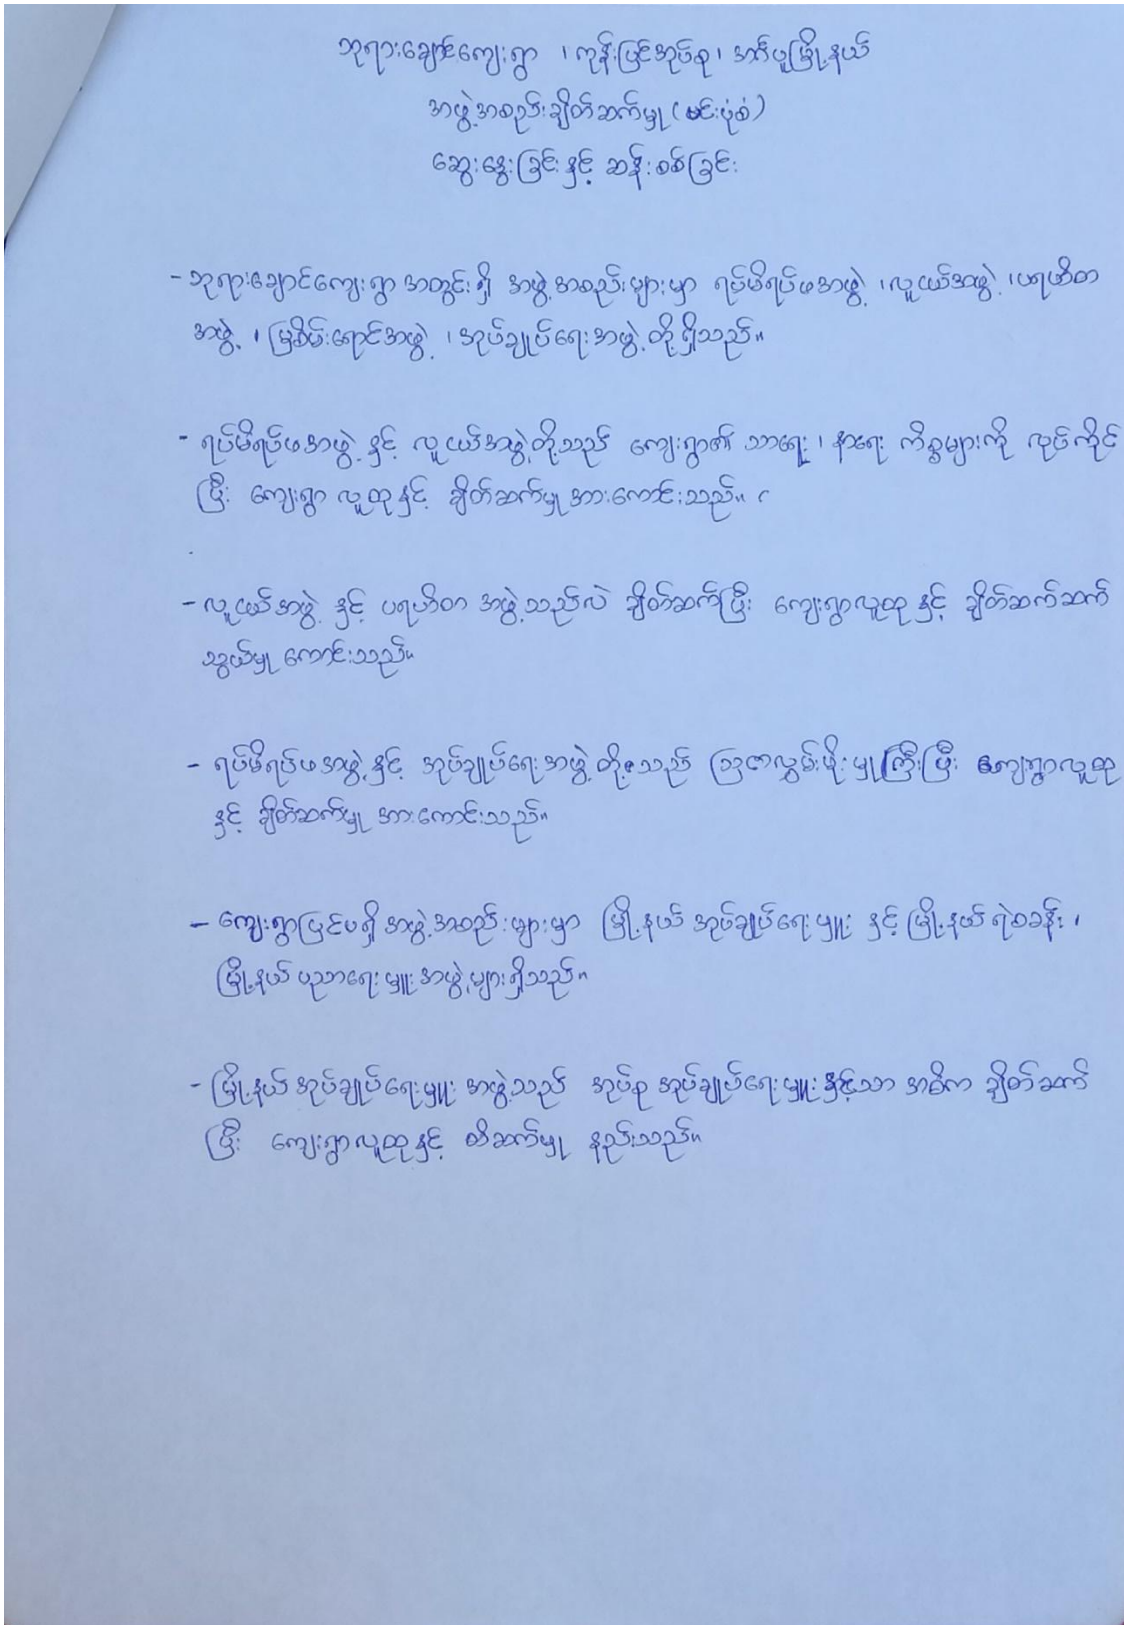 ဘုရားချောင်ကျေးရွာ ၊ ကုန်းပြင်အုပ်စု ၊ အင်္ဂပူမြို့နယ်
အဖွဲ့အစည်းချိတ်ဆက်မှု (မင်းပုံစံ)
ဆွေးနွေးခြင်းနှင့် ဆန်းစစ်ခြင်း
- ဘုရားချောင်ကျေးရွာ အတွင်းရှိ အဖွဲ့အစည်းများမှာ ရပ်မိရပ်ဖအဖွဲ့ ၊ လူငယ်အဖွဲ့ ၊ ပရဟိတ
အဖွဲ့ ၊ မြစိမ်းရောင်အဖွဲ့ ၊ အုပ်ချုပ်ရေးအဖွဲ့ တို့ရှိသည်။
- ရပ်မိရပ်ဖအဖွဲ့ နှင့် လူငယ်အဖွဲ့တို့သည် ကျေးရွာ၏ သာရေး ၊ နာရေး ကိစ္စများကို လုပ်ကိုင်
ပြီး ကျေးရွာ လူထုနှင့် ချိတ်ဆက်မှု အားကောင်းသည်။
- လူငယ်အဖွဲ့ နှင့် ပရဟိတ အဖွဲ့သည်လဲ ချိတ်ဆက်ပြီး ကျေးရွာလူထု နှင့် ချိတ်ဆက်ဆက်
သွယ်မှု ကောင်းသည်။
- ရပ်မိရပ်ဖအဖွဲ့နှင့် အုပ်ချုပ်ရေးအဖွဲ့ တို့သည် ဩဇာလွှမ်းမိုးမှုကြီးပြီး ကျေးရွာလူထု
နှင့် ချိတ်ဆက်မှု အားကောင်းသည်။
- ကျေးရွာပြင်ပရှိ အဖွဲ့အစည်းများမှာ မြို့နယ် အုပ်ချုပ်ရေးမှူး နှင့် မြို့နယ် ရဲစခန်း ၊
မြို့နယ် ပညာရေးမှူးအဖွဲ့များရှိသည်။
- မြို့နယ် အုပ်ချုပ်ရေးမှူး အဖွဲ့သည် အုပ်စု အုပ်ချုပ်ရေးမှူးနှင့်သာ အဓိက ချိတ်ဆက်
ပြီး ကျေးရွာလူထုနှင့် ထိဆက်မှု နည်းသည်။